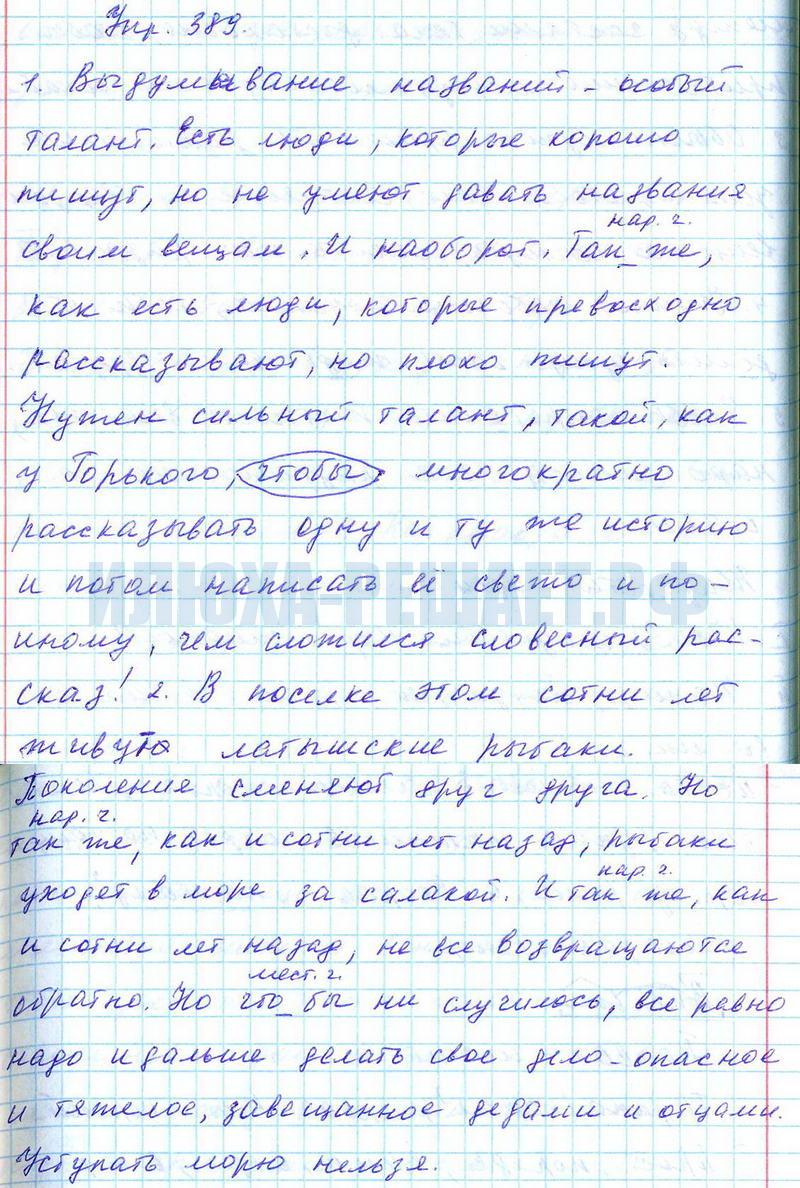 Упр. 389.
1. Выдумывание названий – особый
талант. Есть люди, которые хорошо
пишут, но не умеют давать названия
нар. ч.
своим вещам. И наоборот. Так_же,
как есть люди, которые превосходно
рассказывают, но плохо пишут.
Нужен сильный талант, такой, как
у Горького, чтобы многократно
рассказывать одну и ту же историю
и потом написать её свежо и по-
ИЛЮХА-РЕШАЕТ.РФ
иному, чем сложился словесный рас-
сказ! 2. В поселке этом сотни лет
живут латышские рыбаки.
Поколения сменяют друг друга. Но
нар. ч.
так же, как и сотни лет назад, рыбаки
нар. ч.
уходят в море за салакой. И так же, как
и сотни лет назад, не все возвращаются
мест. ч.
обратно. Но что_бы ни случилось, все равно
надо и дальше делать свое дело – опасное
и тяжелое, завещанное дедами и отцами.
Уступать морю нельзя.